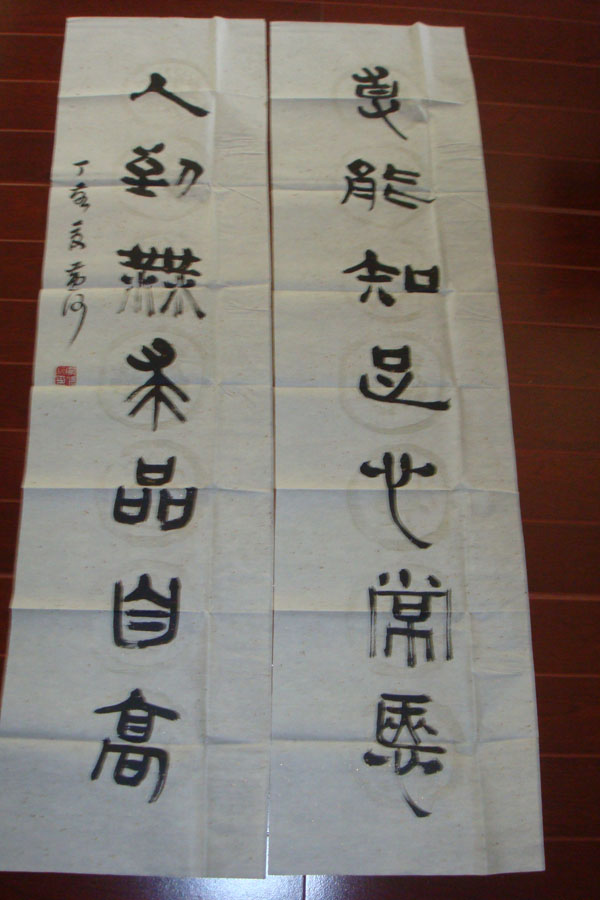 事能知足心常
人到無求品自高
丁亥夏